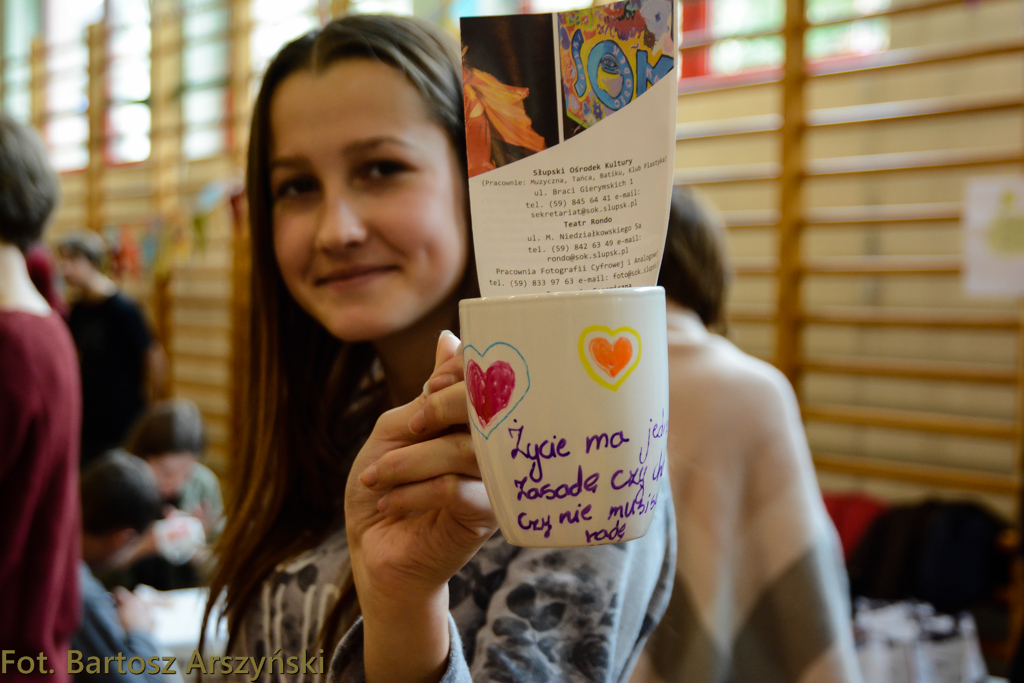 SOK
Słupski Ośrodek Kultury
(Pracownie: Muzyczna, Tańca, Batiku, Klub Plastyka)
ul. Braci Gierymskich 1
tel. (59) 845 64 41 e-mail:
sekretariat@sok.slupsk.pl
Teatr Rondo
ul. M. Niedziałkowskiego 5a
tel. (59) 842 63 49 e-mail:
rondo@sok.slupsk.pl
Pracownia Fotografii Cyfrowej i Analogowej
tel. (59) 833 97 63 e-mail: foto@sok.slupsk
Życie ma jed
zasadę czy ch
czy nie musis
radę
Fot. Bartosz Arszyński